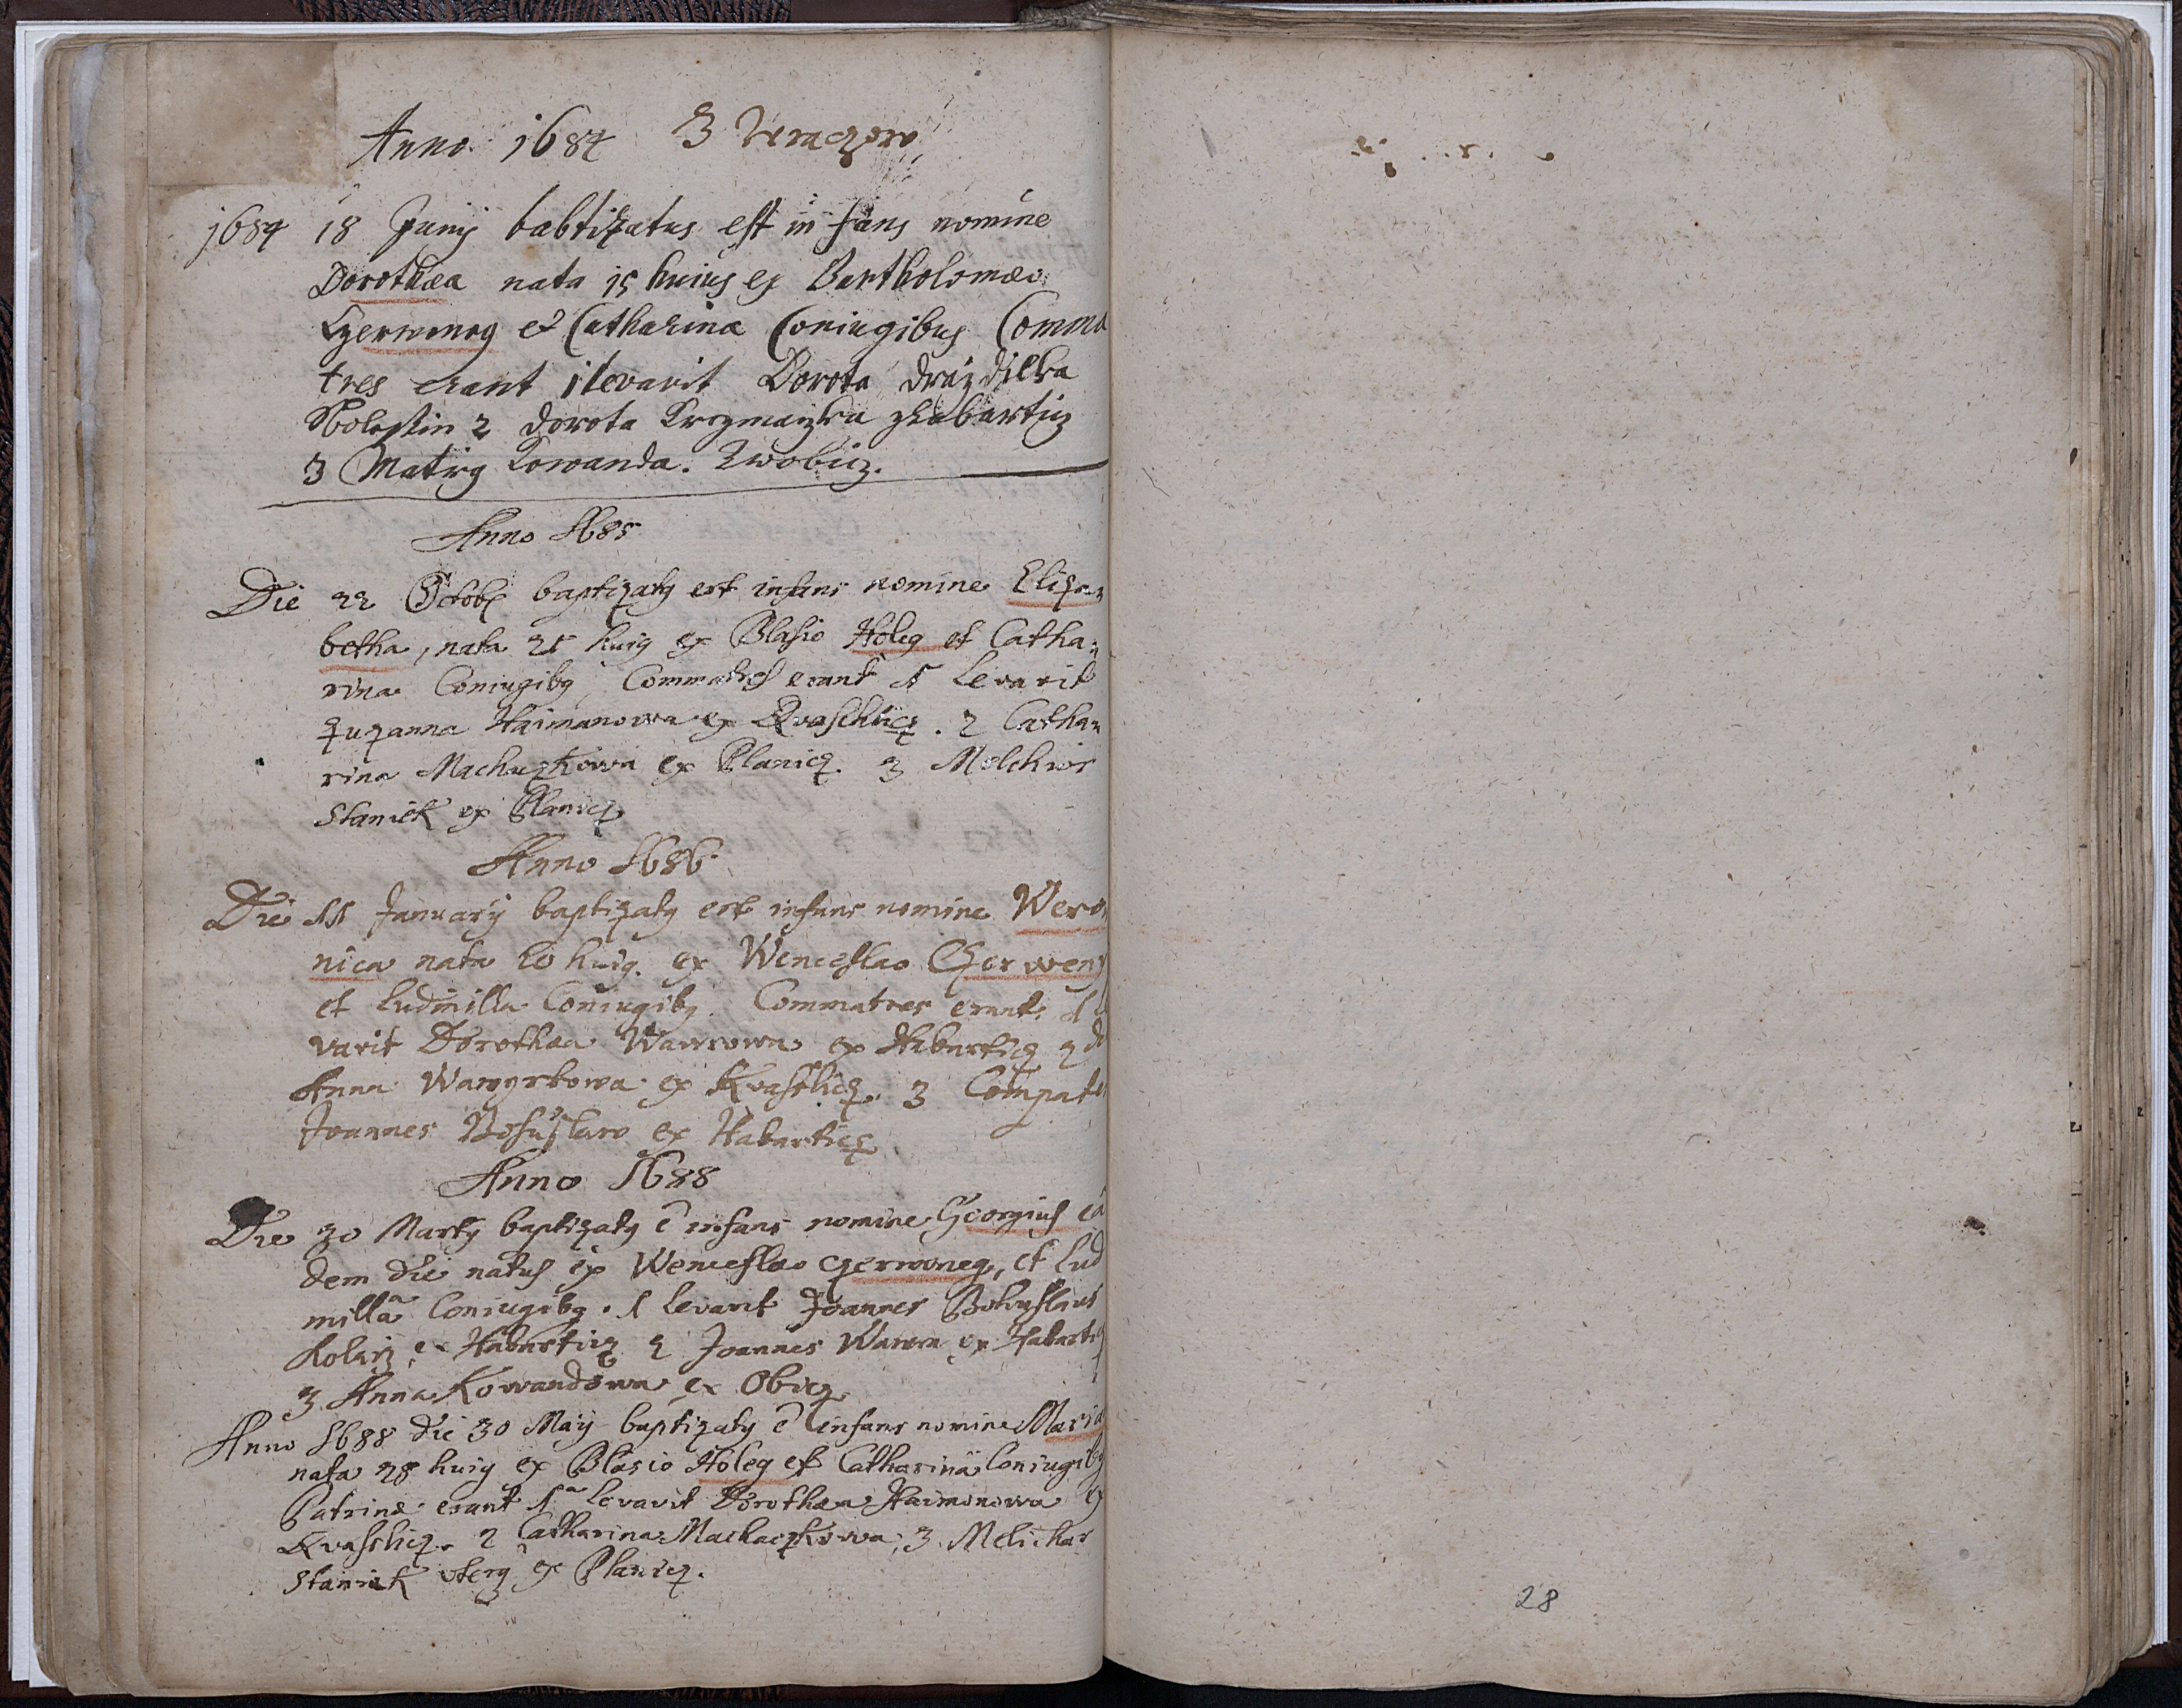 Anno 1684 Z
1684 18 Junij babtizatus est in fans nomine
Dorothæa nata 15 huius ex Bartholomæo
Czerwenog et Catharina Coniugibus Comma
tres erant 1 levavit Dorota
2 Dorota
3 Kowanda. Zwobicz.
Anno 1685
Die 22 Octobr baptizatg est infans nomine Eliza=
betha, nata 21 huig ex Blasio Holeg et Catha=
rina Coniugibg, Commatres erant 1 Levavit
zuzanna Haimanowa ex Quaschücz. 2 Catha=
rina Machaczkowa ex Planicz. 3 Melchior
Staniek ex Planicz
Anno 1686
Die 11 Januarij baptizatg est infans nomine Wero
nica nata 10 huig. ex Wenceslao Czerweny
et Ludmilla Coniugibg. Commatres erant. 1
varit Dorothæa Wawrowa ex Habarticz 2
Anna ex Kvasslicz. 3 Compater
Joannes ex Habarticz
Anno 1688
Die 20 Martij baptizatg ẽ infans nomine Georgius eâ
dem die natus ex Wenceslao czerwoneg, et Lud
millâ Coniugibg. 1 levavit Joannes Bohuslaus
Kolarz ex Habarticz 2 Joannes Wawra ex Habarticz
3 Anna Kowandowa ex Obicz
Anno 1688 die 30 Maij baptizatg ẽ infans nomine Maria
nata 28 huig ex Blasio Holeg et Catharina Coniugibg
Patrinæ erant 1ª Levavit Dorothæa Haimonowa ex
Kvasslicz. 2 Catharina Machaczkowa, 3. Melichar
Staniek uterg ex Planicz.
28